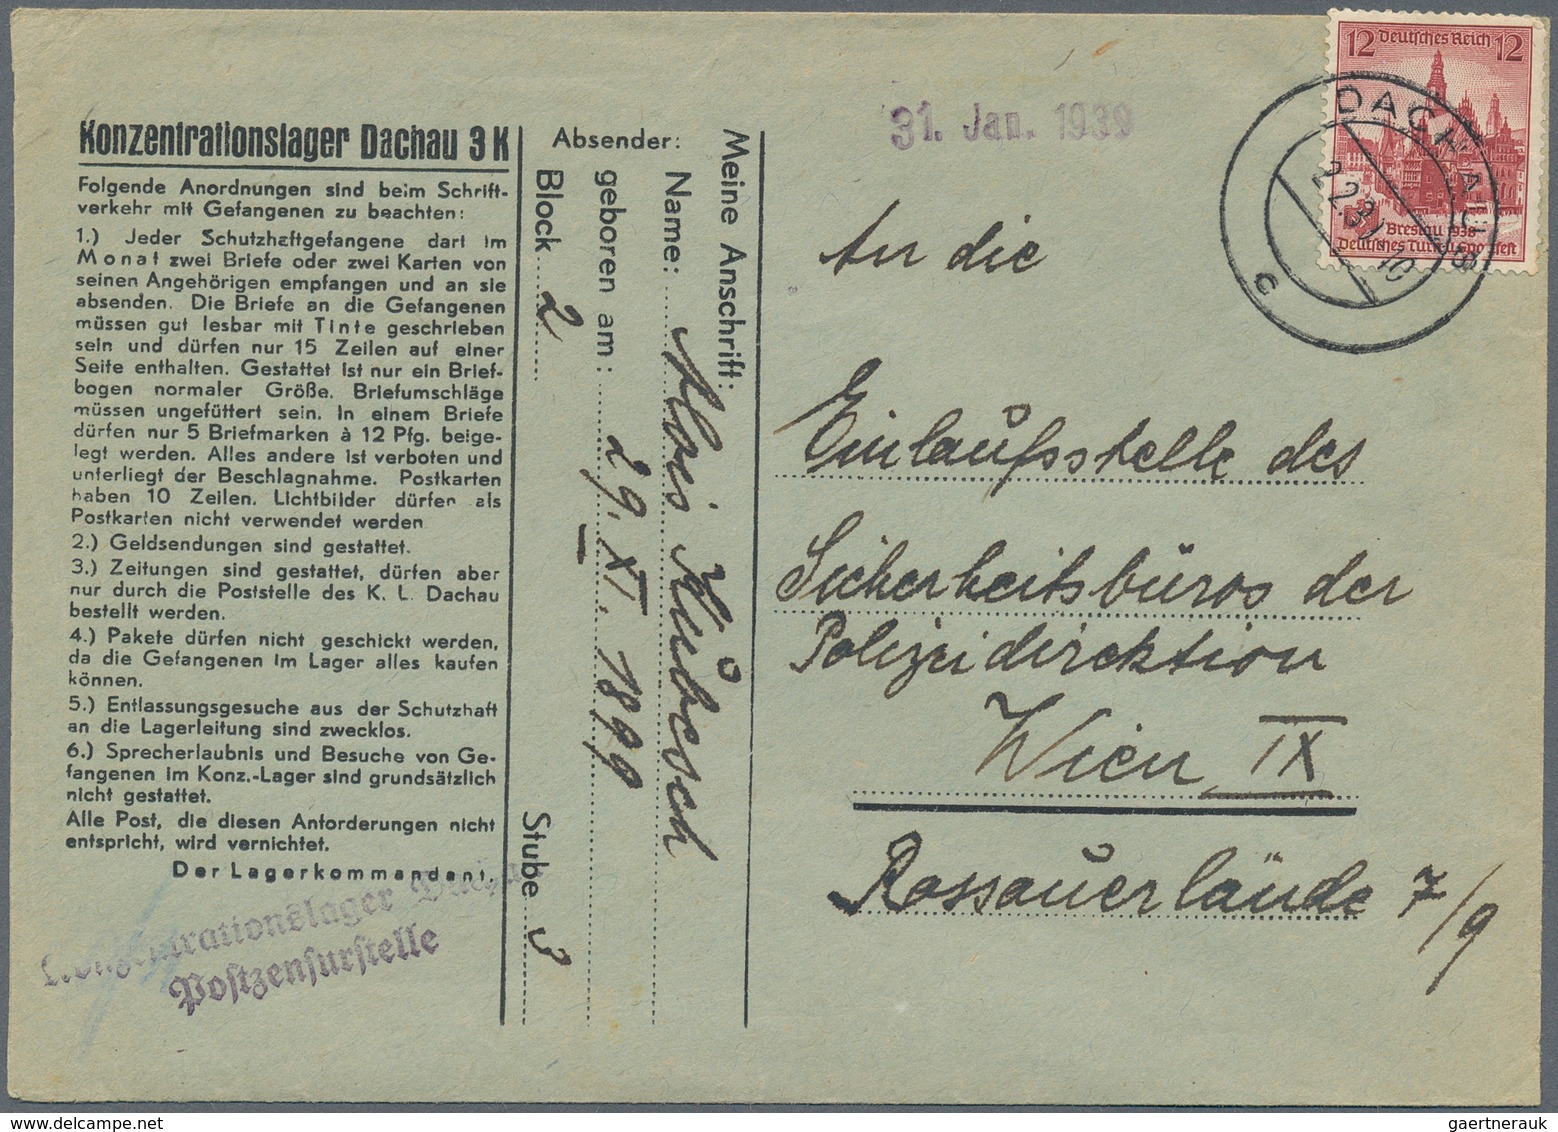 Konzentrationslager Dachau 3 K
Folgende Anordnungen sind beim Schrift-
verkehr mit Gefangenen zu beachten:
1.) Jeder Schutzhaftgefangene darf im
Monat zwei Briefe oder zwei Karten von
seinen Angehörigen empfangen und an sie
absenden. Die Briefe an die Gefangenen
müssen gut lesbar mit Tinte geschrieben
sein und dürfen nur 15 Zeilen auf einer
Seite enthalten. Gestattet ist nur ein Brief-
bogen normaler Größe. Briefumschläge
müssen ungefüttert sein. In einem Briefe
dürfen nur 5 Briefmarken à 12 Pfg. beige-
legt werden. Alles andere ist verboten und
unterliegt der Beschlagnahme. Postkarten
haben 10 Zeilen. Lichtbilder dürfen als
Postkarten nicht verwendet werden
2.) Geldsendungen sind gestattet.
3.) Zeitungen sind gestattet, dürfen aber
nur durch die Poststelle des K. L. Dachau
bestellt werden.
4.) Pakete dürfen nicht geschickt werden,
da die Gefangenen im Lager alles kaufen
können.
5.) Entlassungsgesuche aus der Schutzhaft
an die Lagerleitung sind zwecklos.
6.) Sprecherlaubnis und Besuche von Ge-
fangenen im Konz.-Lager sind grundsätzlich
nicht gestattet.
Alle Post, die diesen Anforderungen nicht
entspricht, wird vernichtet.
Der Lagerkommandant.
Konzentrationslager Dachau
Postzensurstelle
Absender:
Meine Anschrift:
Name: Alois Hübesch
geboren am: 29. XI. 1899
Block 2 Stube 3
31. Jan. 1939
12 Deutsches Reich 12
Breslau 1938
Deutsches Turn-u. Sportfest
DACHAU
2.2.39 10
c
An die
Einlaufsstelle des
Sicherheitsbüros der
Polizeidirektion
Wien IX
Rossauerlände 7/9
gaertnerauk